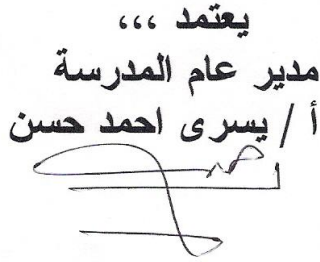 يعتمد ،،،
مدير عام المدرسة
أ / يسرى احمد حسن